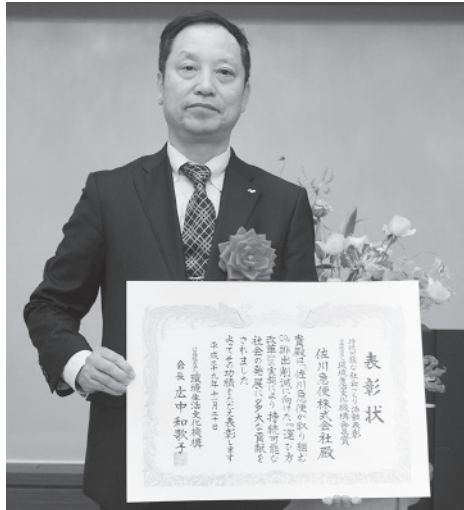 表彰状
持続可能な社会づくり活動表彰
公益社団法人環境生活文化機構会長賞
佐川急便株式会社殿
貴殿は、佐川急便が取り組む
CO₂排出削減に向けた「運び方
改革」の実施により持続可能な
社会の発展に多大な貢献を
されました
よってその功績をたたえ表彰します
平成二十九年十一月二十日
公益社団法人環境生活文化機構
会長 広中和歌子